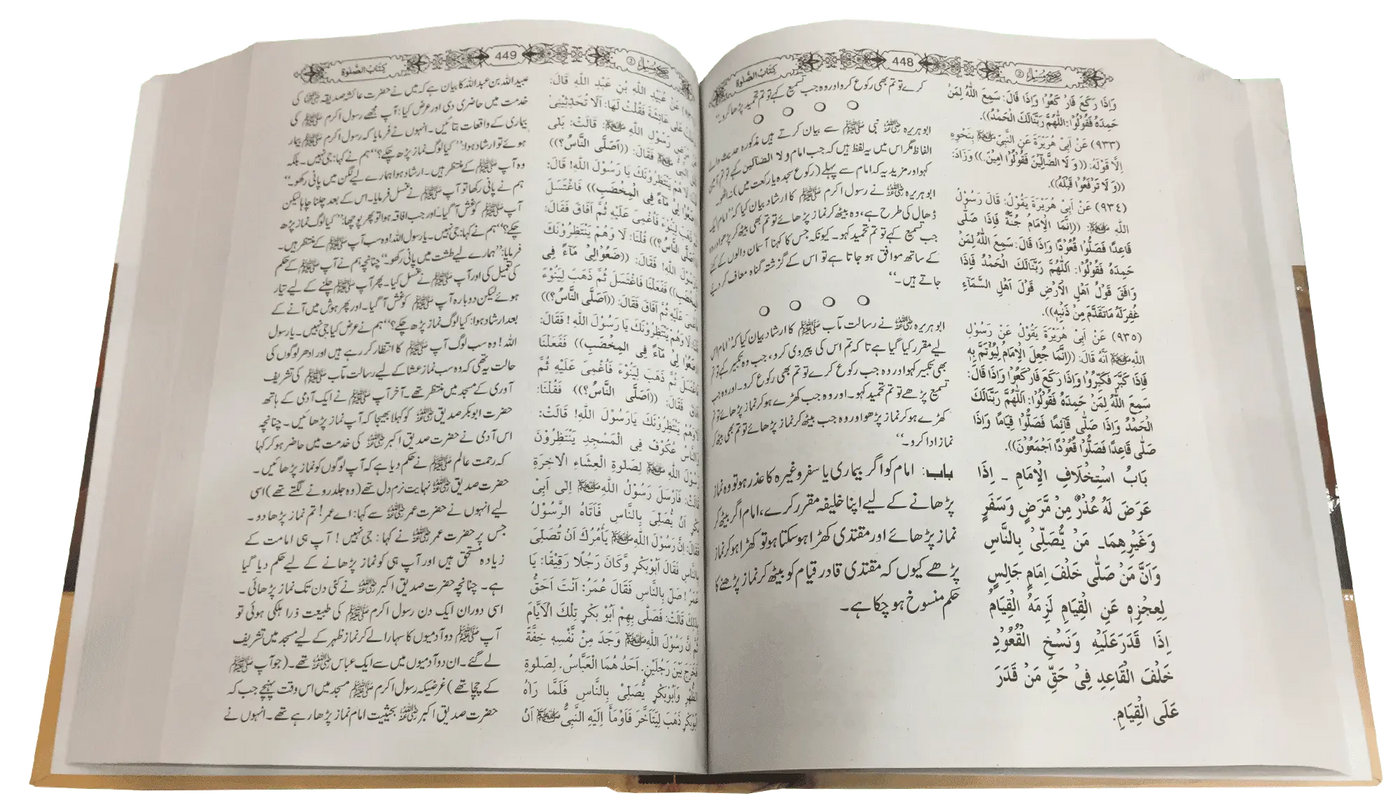 مسلم ②
448
كتاب الصلوة
وَإِذَا رَكَعَ فَارْكَعُوْا وَإِذَا قَالَ: سَمِعَ اللّٰهُ لِمَنْ
حَمِدَهُ فَقُوْلُوْا: اللّٰهُمَّ رَبَّنَالَكَ الْحَمْدُ)).
(٩٣٣) عَنْ أَبِيْ هُرَيْرَةَ عَنِ النَّبِيِّ ﷺ بِنَحْوِهِ
اِلَّا قَوْلَهُ: ((وَ لَا الضَّآلِّيْنَ فَقُوْلُوْا اٰمِيْنَ)) وَزَادَ:
((وَ لَا تَرْفَعُوْا قَبْلَهُ)).
(٩٣٤) عَنْ أَبِيْ هُرَيْرَةَ يَقُوْلُ: قَالَ رَسُوْلُ
اللّٰهِ ﷺ: ((اِنَّمَا الْاِمَامُ جُنَّةٌ فَاِذَا صَلّٰى
قَاعِدًا فَصَلُّوْا قُعُوْدًا وَاِذَا قَالَ: سَمِعَ اللّٰهُ لِمَنْ
حَمِدَهُ فَقُوْلُوْا: اَللّٰهُمَّ رَبَّنَالَكَ الْحَمْدُ فَاِذَا
وَافَقَ قَوْلُ اَهْلِ الْاَرْضِ قَوْلَ اَهْلِ السَّمَآءِ
غُفِرَلَهُ مَاتَقَدَّمَ مِنْ ذَنْبِهِ)).
(٩٣٥) عَنْ أَبِيْ هُرَيْرَةَ يَقُوْلُ عَنْ رَسُوْلِ
اللّٰهِ ﷺ اَنَّهُ قَالَ: ((اِنَّمَا جُعِلَ الْاِمَامُ لِيُؤْتَمَّ بِهِ
فَاِذَا كَبَّرَ فَكَبِّرُوْا وَاِذَا رَكَعَ فَارْكَعُوْا وَاِذَا قَالَ:
سَمِعَ اللّٰهُ لِمَنْ حَمِدَهُ فَقُوْلُوْا: اَللّٰهُمَّ رَبَّنَالَكَ
الْحَمْدُ وَاِذَا صَلّٰى قَائِمًا فَصَلُّوْا قِيَامًا وَاِذَا
صَلّٰى قَاعِدًا فَصَلُّوْا قُعُوْدًا اَجْمَعُوْنَ)).
بَابُ اسْتِخْلَافِ الْاِمَامِ ـ اِذَا
عَرَضَ لَهُ عُذْرٌ مِنْ مَّرَضٍ وَسَفَرٍ
وَغَيْرِهِمَا۔ مَنْ يُّصَلِّيْ بِالنَّاسِ
وَاَنَّ مَنْ صَلّٰى خَلْفَ اِمَامٍ جَالِسٍ
لِعِجْزِهٖ عَنِ الْقِيَامِ لَزِمَهُ الْقِيَامُ
اِذَا قَدَرَعَلَيْهِ وَنَسْخِ الْقُعُوْدِ
خَلْفَ الْقَاعِدِ فِيْ حَقِّ مَنْ قَدَرَ
عَلَى الْقِيَامِ.
کرے تو تم بھی رکوع کرو اور وہ جب تسمیع کہے تو تم تحمید پڑھا کرو۔“
ابو ہریرہ رضی اللہ عنہ نبی ﷺ سے بیان کرتے ہیں مذکورہ حدیث والے
الفاظ مگر اس میں یہ لفظ ہیں کہ جب امام ولا الضالین کہے تو تم آمین
کہو اور مزید یہ کہ امام سے پہلے (رکوع سجدہ یا رکعت میں) نہ اٹھو۔
ابو ہریرہ رضی اللہ عنہ نے رسول اکرم ﷺ کا ارشاد بیان کیا کہ ”امام
ڈھال کی طرح ہے، وہ بیٹھ کر نماز پڑھائے تو تم بھی بیٹھ کر پڑھو اور وہ
جب تسمیع کہے تو تم تحمید کہو۔ کیونکہ جس کا کہنا آسمان والوں کے کہنے
کے ساتھ موافق ہو جاتا ہے تو اس کے گزشتہ گناہ معاف کر دیئے
جاتے ہیں۔“
ابو ہریرہ رضی اللہ عنہ نے رسالت مآب ﷺ کا ارشاد بیان کیا: ”امام اس
لیے مقرر کیا گیا ہے تا کہ تم اس کی پیروی کرو، جب وہ تکبیر کہے تو تم
بھی تکبیر کہو اور وہ جب رکوع کرے تو تم بھی رکوع کرو۔ اور وہ جب
تسمیع پڑھے تو تم تحمید کہو۔ اور وہ جب کھڑے ہو کر نماز پڑھائے تو تم
کھڑے ہو کر نماز پڑھو اور وہ جب بیٹھ کر نماز پڑھائے تو تم بھی بیٹھ کر
نماز ادا کرو۔“
باب: امام کو اگر بیماری یا سفر وغیرہ کا عذر ہو تو وہ نماز
پڑھانے کے لیے اپنا خلیفہ مقرر کرے، امام اگر بیٹھ کر
نماز پڑھائے اور مقتدی کھڑا ہوسکتا ہو تو کھڑا ہو کر نماز
پڑھے کیوں کہ مقتدی قادر قیام کو بیٹھ کر نماز پڑھنے کا
حکم منسوخ ہو چکا ہے۔
مسلم ②
449
كتاب الصلوة
عَنْ عُبَيْدِ اللّٰهِ بْنِ عَبْدِ اللّٰهِ قَالَ:
عَلٰى عَائِشَةَ فَقُلْتُ لَهَا: اَلَا تُحَدِّثِيْنِيْ
رَسُوْلِ اللّٰهِ ﷺ قَالَتْ: بَلٰى
ﷺ فَقَالَ: ((اَصَلَّى النَّاسُ؟))
وَهُمْ يَنْتَظِرُوْنَكَ يَا رَسُوْلَ اللّٰهِ! قَالَ:
لِيْ مَآءً فِي الْمِخْضَبِ)) فَفَعَلْنَا فَاغْتَسَلَ
لِيَنُوْٓءَ فَاُغْمِيَ عَلَيْهِ ثُمَّ اَفَاقَ فَقَالَ:
النَّاسُ؟)) قُلْنَا: لَا وَهُمْ يَنْتَظِرُوْنَكَ
اللّٰهِ! فَقَالَ: ((ضَعُوْالِيْ مَآءً فِي
الْمِخْضَبِ)) فَفَعَلْنَا فَاغْتَسَلَ ثُمَّ ذَهَبَ لِيَنُوْٓءَ
عَلَيْهِ ثُمَّ اَفَاقَ فَقَالَ: ((اَصَلَّى النَّاسُ؟))
وَهُمْ يَنْتَظِرُوْنَكَ يَا رَسُوْلَ اللّٰهِ! فَقَالَ:
لِيْ مَآءً فِي الْمِخْضَبِ)) فَفَعَلْنَا
ثُمَّ ذَهَبَ لِيَنُوْٓءَ فَاُغْمِيَ عَلَيْهِ ثُمَّ
فَقَالَ: ((اَصَلَّى النَّاسُ؟)) فَقُلْنَا:
وَهُمْ يَنْتَظِرُوْنَكَ يَارَسُوْلَ اللّٰهِ! قَالَتْ:
عُكُوْفٌ فِي الْمَسْجِدِ يَنْتَظِرُوْنَ
اللّٰهِ ﷺ لِصَلٰوةِ الْعِشَآءِ الْاٰخِرَةِ
فَاَرْسَلَ رَسُوْلُ اللّٰهِ ﷺ اِلٰى اَبِيْ
اَنْ يُّصَلِّيَ بِالنَّاسِ فَاَتَاهُ الرَّسُوْلُ
فَقَالَ: اِنَّ رَسُوْلَ اللّٰهِ ﷺ يَأْمُرُكَ اَنْ تُصَلِّيَ
بِالنَّاسِ فَقَالَ اَبُوْبَكْرٍ وَّكَانَ رَجُلًا رَقِيْقًا: يَا
عُمَرُ! صَلِّ بِالنَّاسِ فَقَالَ عُمَرُ: اَنْتَ اَحَقُّ
قَالَتْ: فَصَلّٰى بِهِمْ اَبُوْ بَكْرٍ تِلْكَ الْاَيَّامَ
اِنَّ رَسُوْلَ اللّٰهِ ﷺ وَجَدَ مِنْ نَّفْسِهٖ خِفَّةً
فَخَرَجَ بَيْنَ رَجُلَيْنِ۔ اَحَدُ هُمَا الْعَبَّاسُ۔ لِصَلٰوةِ
الظُّهْرِ وَاَبُوْبَكْرٍ يُّصَلِّيْ بِالنَّاسِ فَلَمَّا رَاٰهُ
اَبُوْبَكْرٍ ذَهَبَ لِيَتَاَخَّرَ فَاَوْمَاَ اِلَيْهِ النَّبِيُّ ﷺ اَنْ
عبید اللہ بن عبد اللہ کا بیان ہے کہ میں نے حضرت عائشہ صدیقہ رضی اللہ عنہا کی
خدمت میں حاضری دی اور عرض کیا: آپ مجھے رسول اکرم ﷺ کی
بیماری کے واقعات بتائیں۔ انہوں نے فرمایا کہ رسول اکرم ﷺ بیمار
ہوئے تو ارشاد ہوا: ”کیا لوگ نماز پڑھ چکے؟“ ہم نے کہا: جی نہیں۔ بلکہ
وہ آپ ﷺ کے منتظر ہیں۔ ارشاد ہوا ہمارے لیے لگن میں پانی رکھو۔“
ہم نے پانی رکھا تو آپ ﷺ نے غسل فرمایا۔ اس کے بعد چلنا چاہا لیکن
آپ ﷺ کو غش آ گیا۔ اور جب افاقہ ہوا تو پھر پوچھا: ”کیا لوگ نماز پڑھ
چکے؟“ ہم نے کہا: جی نہیں۔ یا رسول اللہ! وہ سب آپ ﷺ کے منتظر ہیں۔
فرمایا: ”ہمارے لیے طشت میں پانی رکھو۔“ چنانچہ ہم نے آپ ﷺ کے حکم
کی تعمیل کی اور آپ ﷺ نے غسل کیا۔ پھر آپ ﷺ چلنے کے لیے تیار
ہوئے لیکن دوبارہ آپ ﷺ کو غش آ گیا۔ اور پھر ہوش میں آنے کے
بعد ارشاد ہوا: کیا لوگ نماز پڑھ چکے؟“ ہم نے عرض کیا جی نہیں۔ یا رسول
اللہ! وہ سب لوگ آپ ﷺ کا انتظار کر رہے ہیں اور ادھر لوگوں کی
حالت یہ تھی کہ وہ سب نماز عشا کے لیے رسالت مآب ﷺ کی تشریف
آوری کے مسجد میں منتظر تھے۔ آخر آپ ﷺ نے ایک آدمی کے ہاتھ
حضرت ابوبکر صدیق رضی اللہ عنہ کو کہلا بھیجا کہ آپ نماز پڑھائیں۔ چنانچہ
اس آدمی نے حضرت صدیق اکبر رضی اللہ عنہ کی خدمت میں حاضر ہو کر کہا
کہ رحمت عالم ﷺ نے حکم دیا ہے کہ آپ لوگوں کو نماز پڑھائیں۔
حضرت صدیق رضی اللہ عنہ نہایت نرم دل تھے (وہ جلد رونے لگتے تھے) اسی
لیے انہوں نے حضرت عمر رضی اللہ عنہ سے کہا: اے عمر! تم نماز پڑھا دو۔
جس پر حضرت عمر رضی اللہ عنہ نے کہا: جی نہیں! آپ ہی امامت کے
زیادہ مستحق ہیں اور آپ ہی کو نماز پڑھانے کے لیے حکم دیا گیا
ہے۔ چنانچہ حضرت صدیق اکبر رضی اللہ عنہ نے کئی دن تک نماز پڑھائی۔
اسی دوران ایک دن رسول اکرم ﷺ کی طبیعت ذرا ہلکی ہوئی تو
آپ ﷺ دو آدمیوں کا سہارا لے کر نماز ظہر کے لیے مسجد میں تشریف
لے گئے۔ ان دو آدمیوں میں سے ایک عباس رضی اللہ عنہ تھے۔ (جو آپ ﷺ
کے چچا تھے) غرضیکہ رسول اکرم ﷺ مسجد میں اس وقت پہنچے جب کہ
حضرت صدیق اکبر رضی اللہ عنہ بحیثیت امام نماز پڑھا رہے تھے۔ انہوں نے